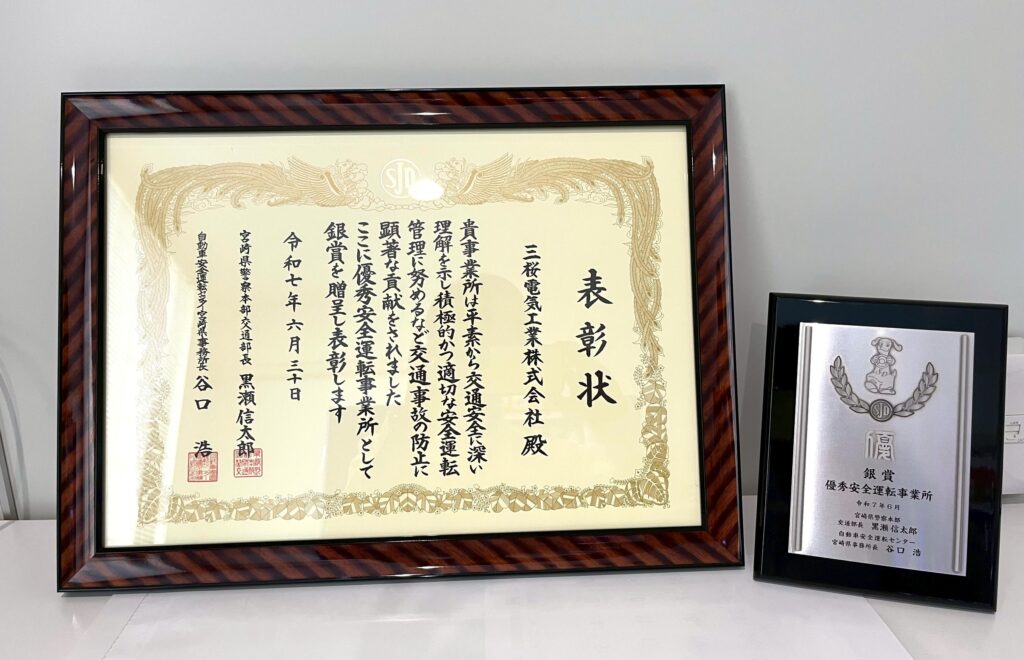 SJD
表彰状
三桜電気工業株式会社 殿
貴事業所は平素から交通安全に深い
理解を示し積極的かつ適切な安全運転
管理に努めるなど交通事故の防止に
顕著な貢献をされました
ここに優秀安全運転事業所として
銀賞を贈呈し表彰します
令和七年六月三十日
宮崎県警察本部交通部長 黒瀬信太郎
自動車安全運転センター宮崎県事務所長 谷口 浩
SJD
優
銀賞
優秀安全運転事業所
令和7年6月
宮崎県警察本部
交通部長 黒瀬信太郎
自動車安全運転センター
宮崎県事務所長 谷口 浩